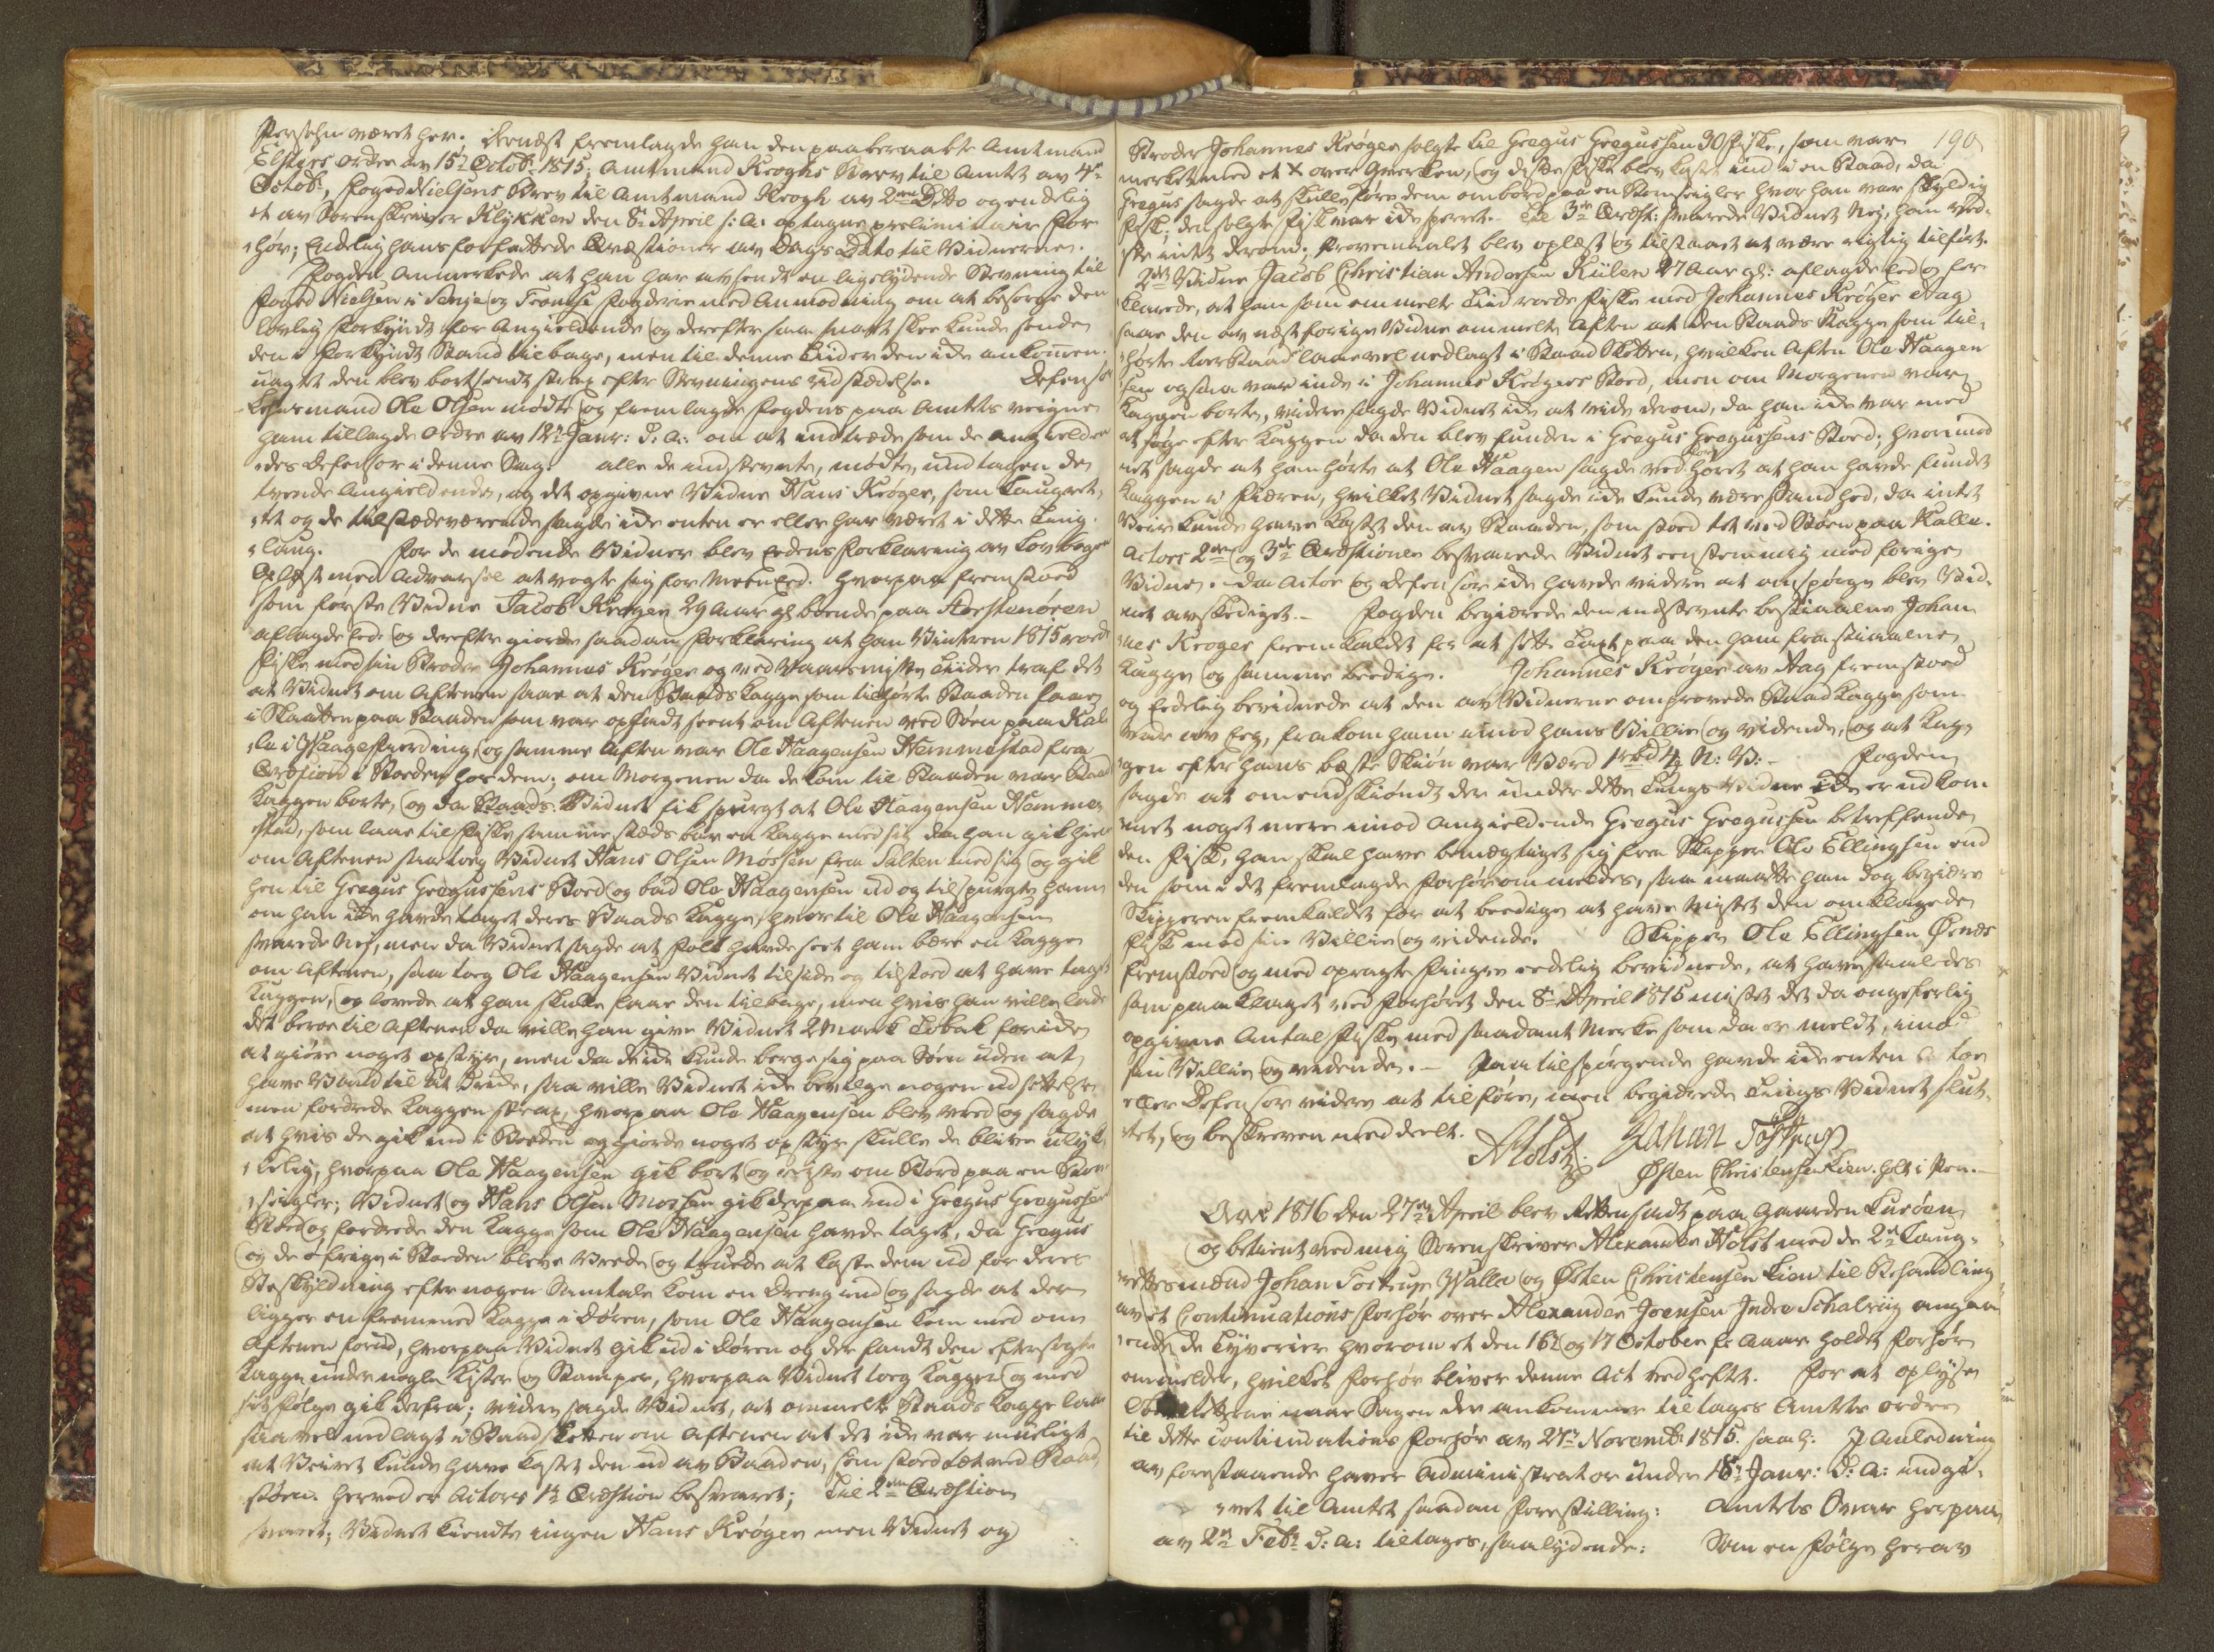 Persohn været her; dernæst fremlagde han den paaberaabte Amtmand
Elsters Ordre av 15de Octobr 1815, Amtmand Kroghs Brev til Amtet av 4de
Octobr, Foged Nielsens Brev til Amtmand Krogh av 2den Dito og endelig
et av Sorenskriver Klykken den 8de April s: a: optagne preliminair For
hør; Endelig hans forfattede Qvæstioner av Dags Dato til Vidnerne.
Fogden anmerkede at han har avsendt en ligelydende Stevning til
Foged Nielsen i Senje og Tromsø Fogderie med Anmodning om at besørge den
lovlig forkyndt for Angieldende og derefter saa snart skee kunde sende
den i forkyndt Stand tilbage, men til denne Tiid er den ikke ankommen
uagtet den blev bortsendt strax efter Stevningens udstædelse. Defensor
Lensmand Ole Olsen mødte og fremlagde Fogdens paa Amtets veigne
ham tillagde Ordre av 12te Janr: d: a: om at indtræde som de Angielden
des Defensor i denne Sag. Alle de indstevnte, mødte, undtagen de
tvende Angieldende, og det opgivne Vidne Hans Krøger, som Laugret
tet og de tilstædeværende sagde ikke enten er eller har været i dette Ting
laug. For de mødende Vidner blev Eedens Forklaring av Lovbogen
oplæst med Advarsel at vogte sig for Meeneed. Hvorpaa fremstoed
som første Vidne Jacob Krøger 29 Aar gl boende paa Torstenøren
aflagde Eed og derefter giorde saadan Forklaring at han Vinteren 1815 roede
Fiske med sin Broder Johannes Krøger og ved Vaarsmisse Tiider traf det
at Vidnet om Aftenen saae at den Baads Kagge som tilhørte Baaden laae
i Skaatten paa Baaden som var opsadt seent om Aftenen ved Søen paa Kal
le i Vaage Fierding og samme Aften var Ole Haagensen Hemmestad fra
Qvæfiord i Boeden hos dem; om Morgenen da de kom til Baaden var Baad
Kaggen borte, og da Vidnet fik spurgt at Ole Haagensen Hemme
stad, som laae til Fiske samme stæds bar en Kagge med sig da han gik hiem
om Aftenen saa tog Vidnet Hans Olsen Mørsen fra Salten med sig og gik
hen til Gregus Gregussens Boed og bad Ole Haagensen ud og tilspurgte ham
om han ikke havde taget deres Baads Kagge, hvortil Ole Haagensen
svarede Nei, men da Vidnet sagde at Folk havde seet ham bære en Kagge
om Aftenen, saa toeg Ole Haagensen Vidnet tilside og tilstoed at have taget
Kaggen, og lovede at han skulle faae den tilbage, men hvis han ville lade
det beroe til Aftenen da ville han give Vidnet 2 Mark Tobak for ikke
at giøre noget opstyr, men da de ikke kunde berge sig paa Søen uden at
have Vand til at drikke, saa ville Vidnet ikke bevilge nogen udsettelse
men fordrede Kaggen strax, hvorpaa Ole Haagensen blev vred og sagde
at hvis de gik ind i Boeden og giorde noget opstyr skulle de blive ulyk
kelig, hvorpaa Ole Haagensen gik bort og reiste om Bord paa en Stor
seigler; Vidnet og Hans Olsen Mørsen gik derpaa ind i Gregus Gregussens
Boed og fordrede den Kagge som Ole Haagensen havde taget, da Gregus
og de øfrige i Boeden bleve vrede og truede at kaste dem ud for deres
Beskyldning efter nogen Samtale kom en dreng ind og sagde at der
ligger en fremmed Kagge i Døren, som Ole Haagensen kom med om
Aftenen forud, hvorpaa Vidnet gik ud i Døren og der fandt den eftersøgte
Kagge under nogle Kister og Stamper, hvorpaa Vidnet toeg Kaggen og med
sit Følge gik derfra; videre sagde Vidnet, at ommelte Baads Kagge laae
saa vel nedlagt i Baadskotten om Aftenen at det ikke var mueligt
at Veiret kunde have kastet den ud av Baaden, som stoed tæt ved Baad
støen. Herved er Actors 1te Qvæstion besvaret; Til 2den Qvæstion
svaret; Vidnet kiendte ingen Hans Krøger men Vidnet og
190
Broder Johannes Krøger solgte til Gregus Gregussen 30 Fiske, som var
merket med et X over Qverken, og disse Fiske blev kastet ind i en Baad, da
Gregus sagde at skulle føre dem ombord paa en Storseigler hvor han var skyldig
Fisk; den solgte Fisk var ikke sperret. Til 3die Qvæst: svarede Vidnet Nei, han ved
ste intet derom; Prøvemaalet blev oplæst og tilstaaet at være rigtig tilført.
2det Vidne Jacob Christian Andersen Kiilen 27 Aar gl: aflagde Eed og for
klarede, at han som ommelte Tiid roede Fiske med Johannes Krøger Aag
saae den av næst forige Vidne ommelte Aften at den Baads Kagge som til
hørte Baad laae vel nedlagt i Baad Skotten, hvilken Aften Ole Haagen
sen ogsaa var inde i Johannes Krøgers Boed, men om Morgenen var
Kaggen borte, videre sagde Vidnet ikke at vide derom, da han ikke var med
at søge efter Kaggen da den blev funden i Gregus Gregussens Boed; hvorimod
net sagde at han hørte at Ole Haagen sagde ved Forhøret at han havde fundet
Kaggen i Fiæren, hvilket Vidnet sagde ikke kunde være Sandhed, da intet
Veir kunde have kastet den av Baaden, som stoed tet ved Støen paa Kalle.
Actors 2den og 3die Qvæstioner besvarede Vidnet eenstemmig med forige
Vidne. Da Actor og Defensor ikke havde videre at omspørge blev Vid
net avskediget. Fogden begierede den indstevnte bestiaalne Johan
nes Kroger fremkaldet for at sette Taxt paa den ham frastiaalne
Kagge og samme beedige. Johannes Kroger av Aag fremstoed
og Eedelig bevidnede at den av Vidnerne omprovede Baad Kagge som
var av Eeg, frakom ham imod hans Villie og vidende, og at Kag
gen efter hans beste Skiøn var Værd 1 rbd 1/2 N: V: Fogden
sagde at omendskiøndt der under dette Tings Vidne ikke er udkom
met noget mere imod Angieldende Gregus Gregussen betreffende
den Fisk, han skal have bemægtiget sig fra Skipper Ole Ellingsen end
den som i det fremlagde Forhør ommeldes, saa maatte han dog begiære
Skipperen fremkaldet for at beedige at have mistet den omklagede
Fisk mod sin Villie og vidende. Skipper Ole Ellingsen Ørnæs
fremstoed og med opragte Fingre eedelig bevidnede, at have saaledes
som paaklaget ved Forhøret den 8de April 1815 mistet det da ongeferlig
opgivne Antal Fiske med saadant Merke som da er meldt, imod
sin Villie og vidende. Paa tilspørgende havde ikke enten Actor
eller Defensor videre at tilføre, men begierede Tings Vidnet slut
tet, og beskreven meddeelt.
AHolst Johan Tostrup
Østen Christensen Lien. holt i Pen.
Aar 1816 den 27de April blev Retten sadt paa Gaarden Turøen
og betient ved mig Sorenskriver Alexander Holst med de 2de Laug-
rettesmænd Johan Tostrup Valle og Østen Christensen Lien til Behandling
av et Continuations Forhør over Alexander Joensen Indre Schalvig angaa
ende de Tyverier hvorom et den 16de og 17 October f: Aaar holdet Forhør
ommelder, hvilket Forhør bliver denne Act vedheftet. For at oplyse
naar Sagen der ankommer tiltages Amtets Ordre
til dette Continuations Forhør av 27de Novembr 1815. saal: I Anledning
av forestaaende haver Administrator under 18de Janr: d: a: indgi-
vet til Amtet saadan Forestilling: Amtets Svar herpaa
av 2den Febr d: a: tiltages, saalydende: Som en Følge herav